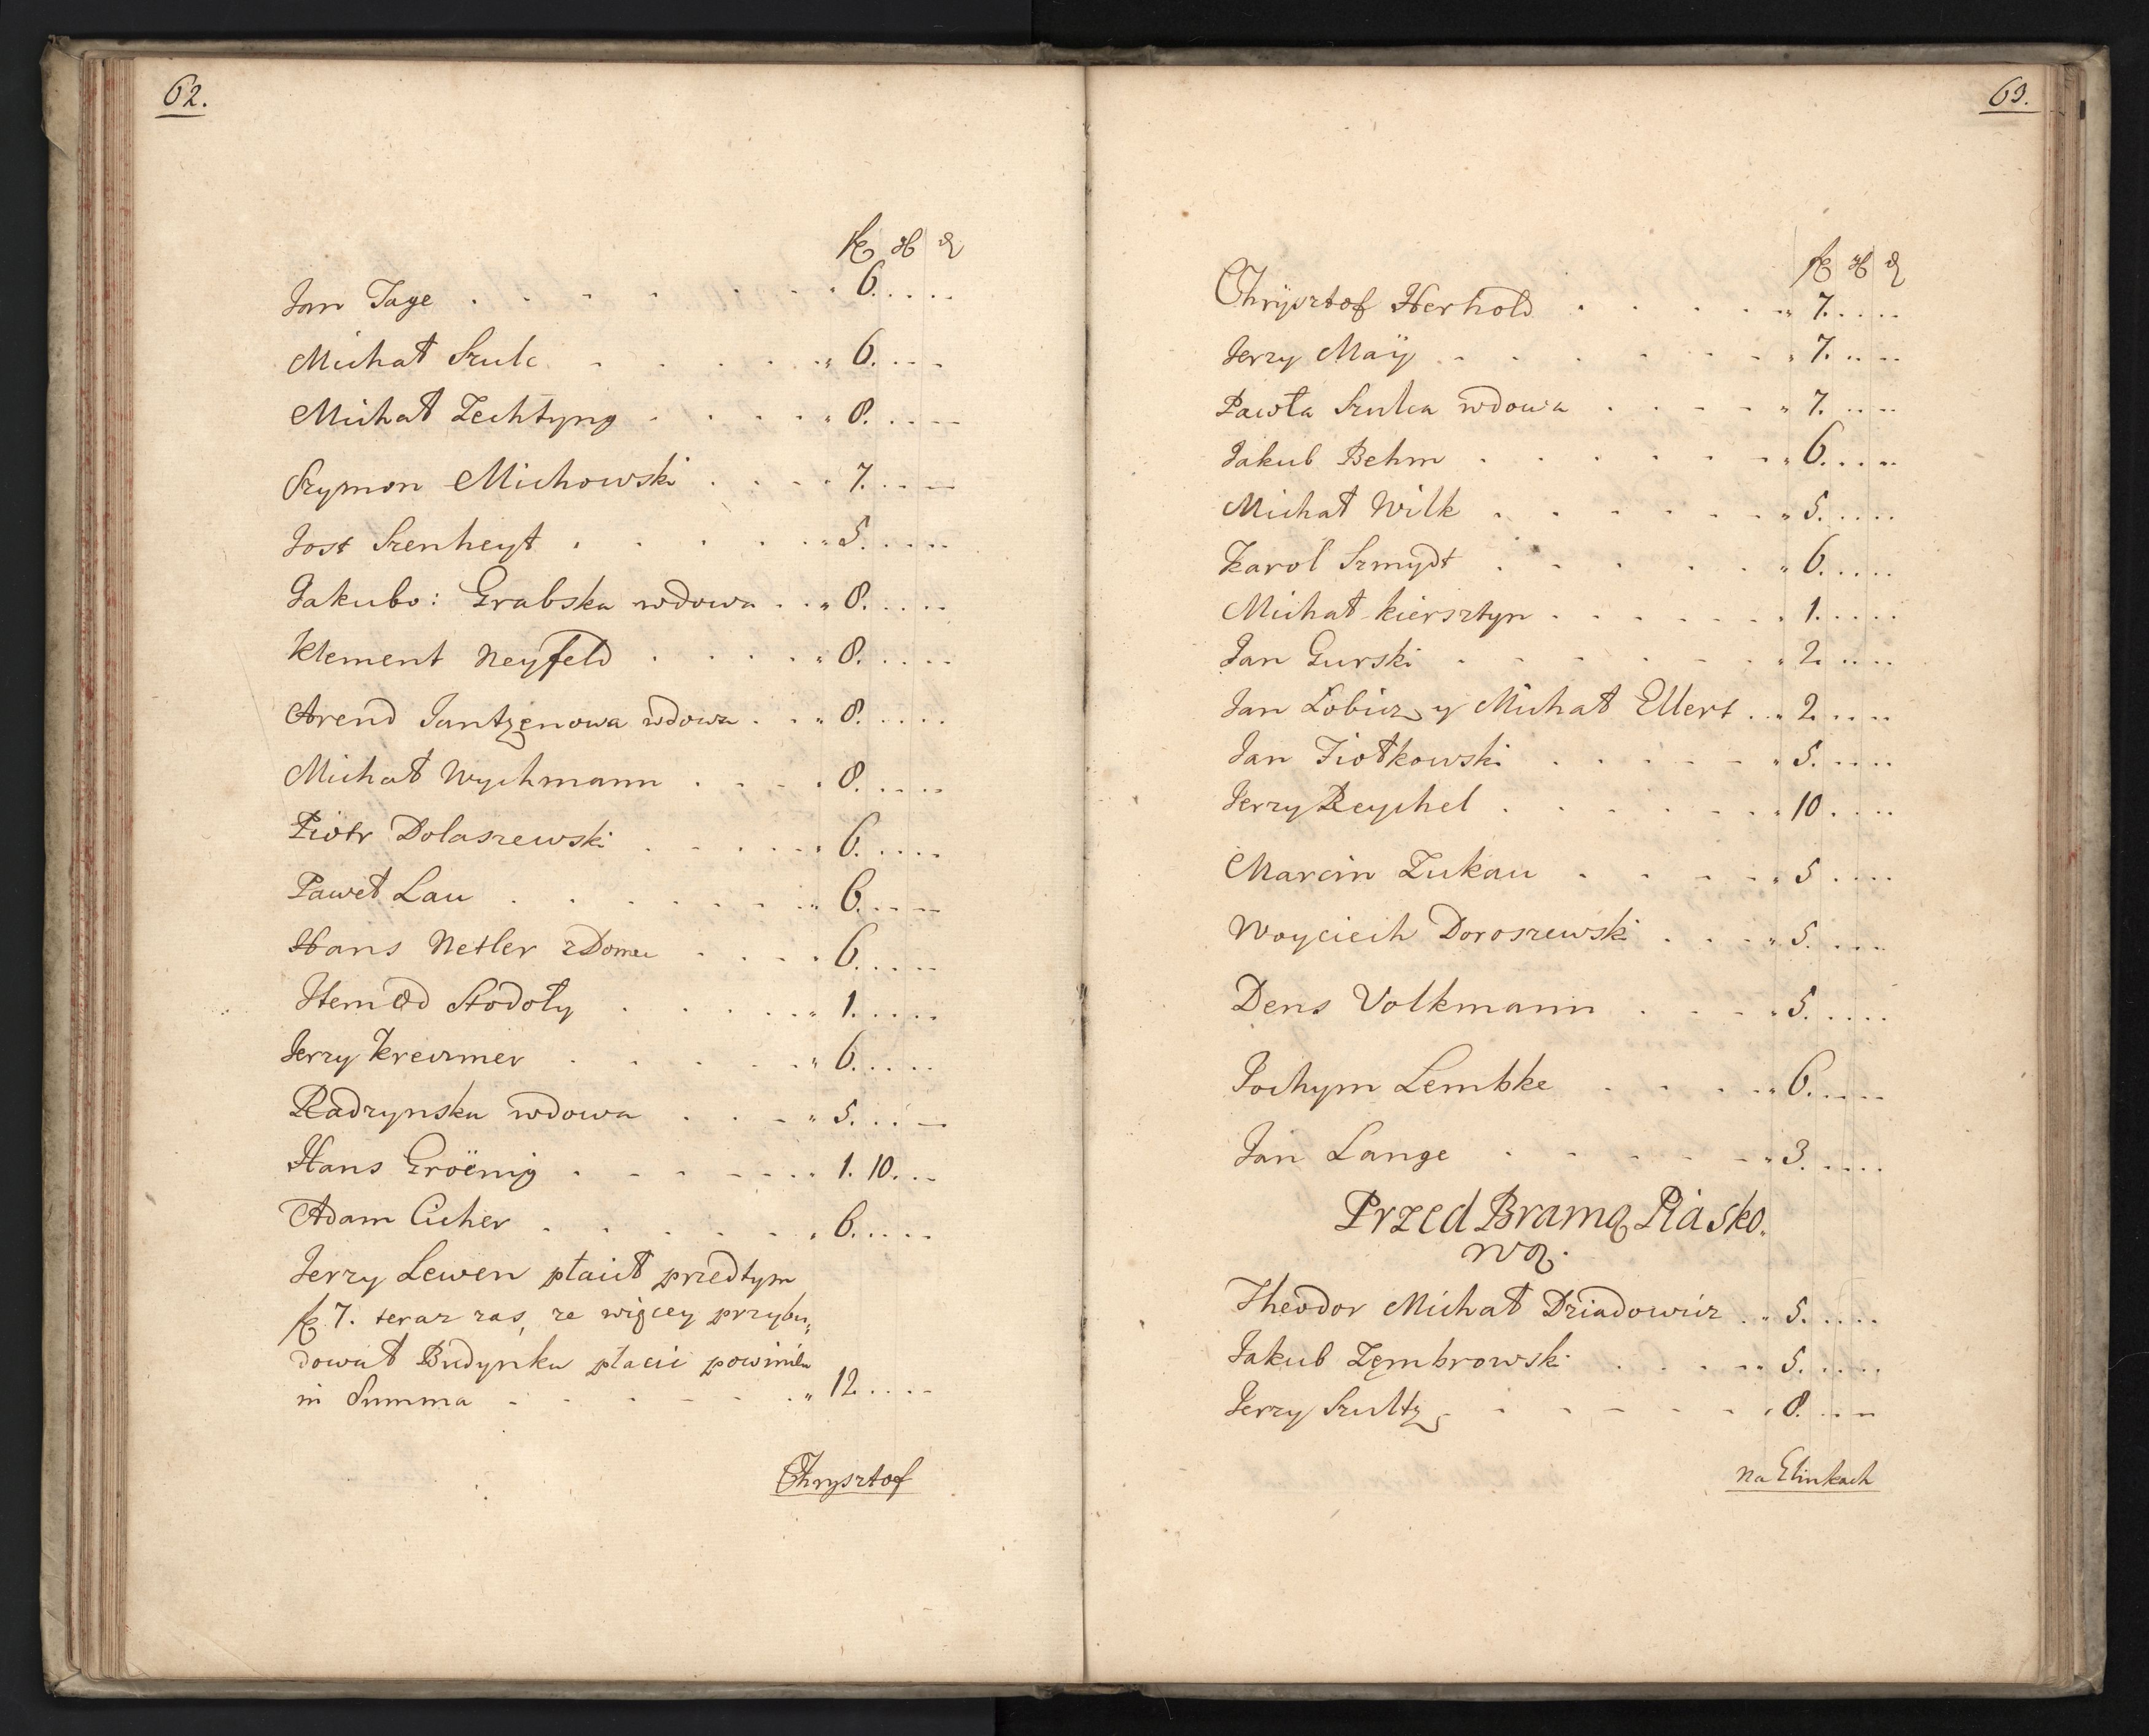 62.
Jan Tage . . . . . . . 6. . . . .
Michał Szulc . . . . . " 6. . . .
Michał Zechtyng . . . . " 8. . . . .
Szymon Michowski . . . . 7. . . . .
Jost Szenheyt . . . . . " 5. . . . .
Jakubo: Grabska wdowa . . " 8. . . . .
Klement Neyfeld . . . . " 8. . . . .
Arend Jantzenowa wdowa . . " 8. . . . .
Michał Wychmann . . . . 8. . . . .
Piotr Dolaszewski . . . . " 6. . . . .
Paweł Lau . . . . . . " 6. . . .
Hans Netler z Domu . . . . 6. . . . .
Item od Stodoły . . . . . " 1. . . . .
Jerzy Kreczmer . . . . " 6. . . . .
Radzynska wdowa . . . " 5. . . . .
Hans Gröenig . . . . . . " 1. 10. . .
Adam Cicher . . . . . " 6. . . . .
Jerzy Lewen płacił przedtym
7. teraz zas, ze więcey przybu„
dował Budynku płacić powinien
in Summa . . . . . . " 12. . . .
Chrysztof
63.
Chrÿsztof Herhold . . . . . " 7. . . . .
Jerzy Maÿ . . . . . . . " 7. . . . .
Pawła Szulca wdowa . . . . " 7. . . . .
Jakub Behm . . . . . . " 6. . . . .
Michał Wilk . . . . . . " 5. . . . .
Karol Szmydt . . . . . " 6. . . . .
Michał Kiersztyn . . . . . . " 1. . . . .
Jan Gurski . . . . . . " 2. . . . .
Jan Łobicz y Michał Ellert . . " 2. . . . .
Jan Fiotkowski . . . . . " 5. . . . .
Jerzy Reychel . . . . . . " 10. . . .
Marcin Zukau . . . . . " 5 . . . .
Woyciech Doroszewski . . . " 5. . . .
Dens Volkmann . . . . " 5. . . . .
Jochym Lembke . . . . " 6. . . . .
Jan Lange . . . . . . " 3. . . . .
Przed Bramą Piasko„
wą.
Theodor Michał Dziadowicz . " 5. . . . .
Jakub Zembrowski . . . . " 5. . . . .
Jerzy Szultz . . . . . . " 8. . . .
Na Elinkach